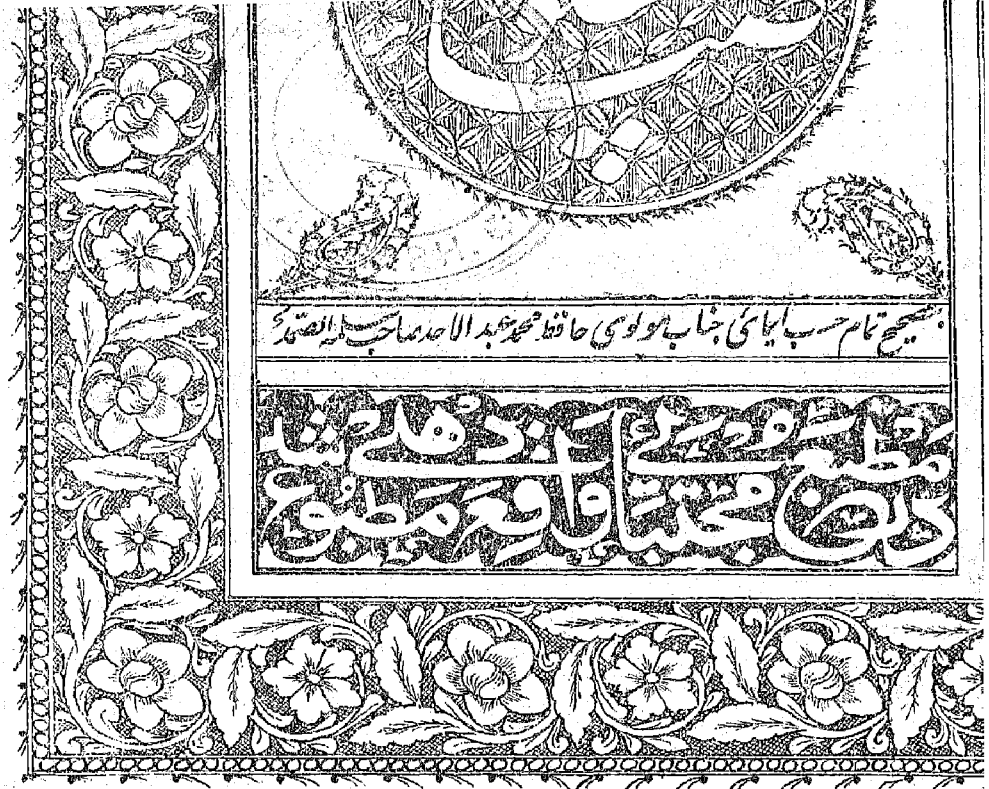 بتصحیح تمام حسب ایمائی جناب مولوی حافظ محمد عبد الاحد صاحب سلمہ الصمد
مطبع مجتبائی واقع دهلی مطبوع شد